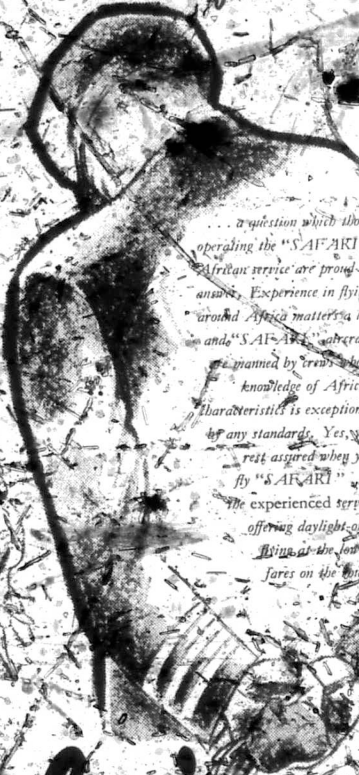 . . . a question which tho
operating the "SAFARI
African service are proud
answer. Experience in flyi
around Africa matters a l
and "SAFARI" aircra
are manned by crews who
knowledge of Afric
characteristics is exception
by any standards. Yes, y
rest assured when y
fly "SAFARI"
the experienced serv
offering daylight-o
flying at the low
fares on the rou